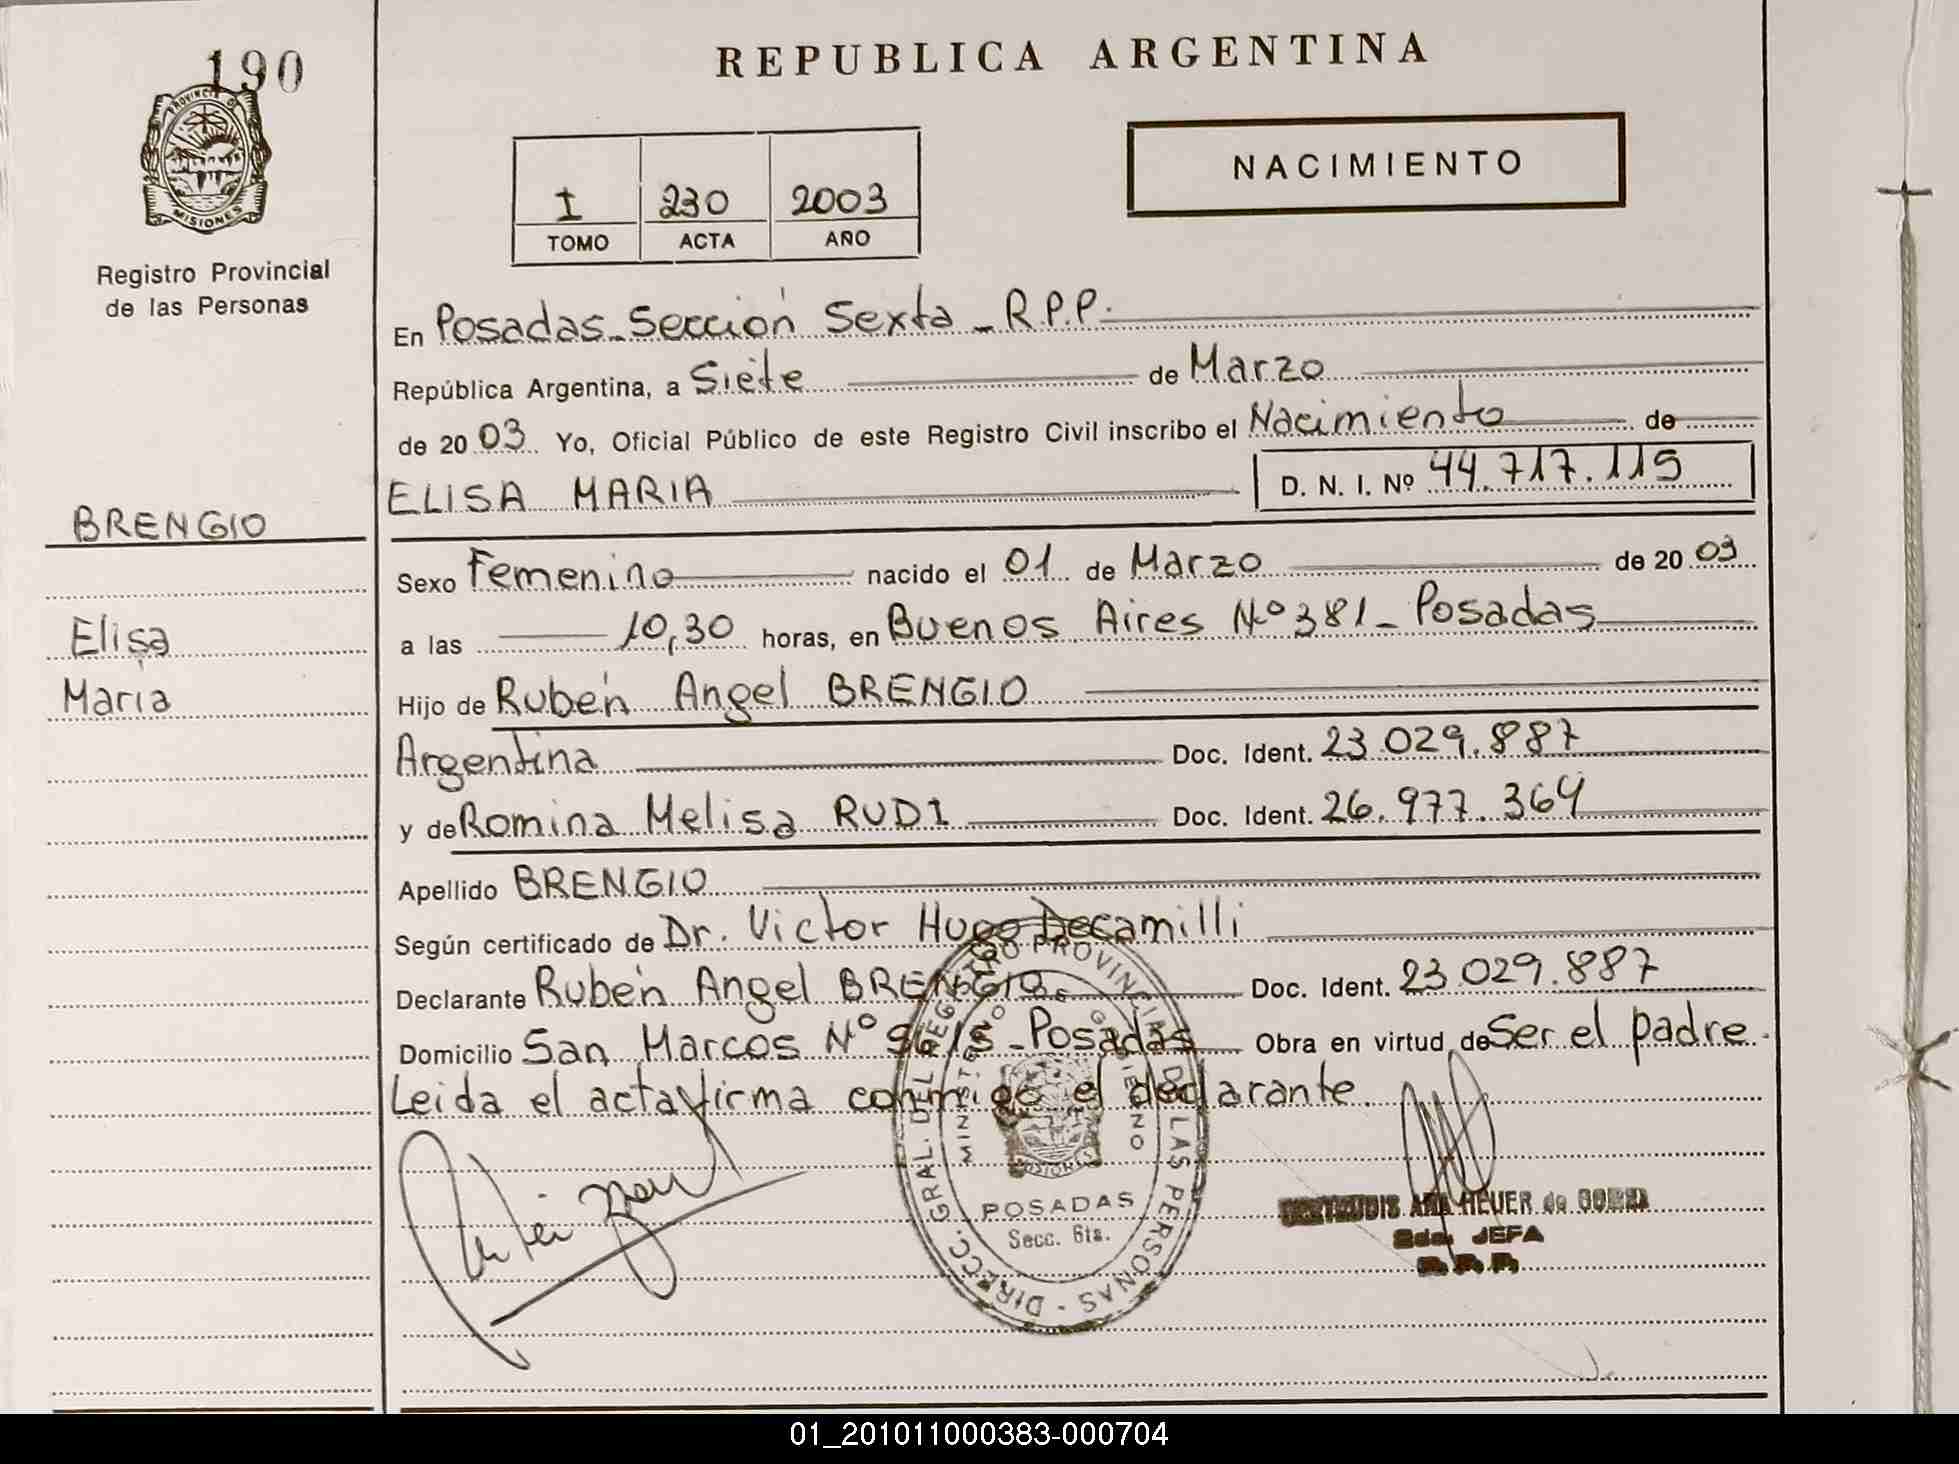 190
PROVINCIA DE
MISIONES
Registro Provincial
de las Personas
BRENGIO
Elisa
María
REPUBLICA ARGENTINA
I 230 2003
TOMO ACTA AÑO
NACIMIENTO
En Posadas-Sección Sexta - R.P.P.
República Argentina, a Siete de Marzo
de 20 03 Yo, Oficial Público de este Registro Civil inscribo el Nacimiento de
ELISA MARIA D. N. I. Nº 44.717.115
Sexo Femenino nacido el 01 de Marzo de 20 03
a las 10,30 horas, en Buenos Aires Nº 381 - Posadas
Hijo de Rubén Angel BRENGIO
Argentina Doc. Ident. 23.029.887
y de Romina Melisa RUDI Doc. Ident. 26.977.364
Apellido BRENGIO
Según certificado de Dr. Victor Hugo Decamilli
Declarante Rubén Angel BRENGIO Doc. Ident. 23.029.887
Domicilio San Marcos Nº - Posadas Obra en virtud de Ser el padre.
Leida el acta firma conmigo el declarante.
DIRECC. GRAL. DEL REGISTRO PROVINCIAL DE LAS PERSONAS
MINISTERIO DE GOBIERNO
MISIONES
POSADAS
Secc. 6ta.
ANA HEUER de
2da. JEFA
R.P.P.
01_201011000383-000704